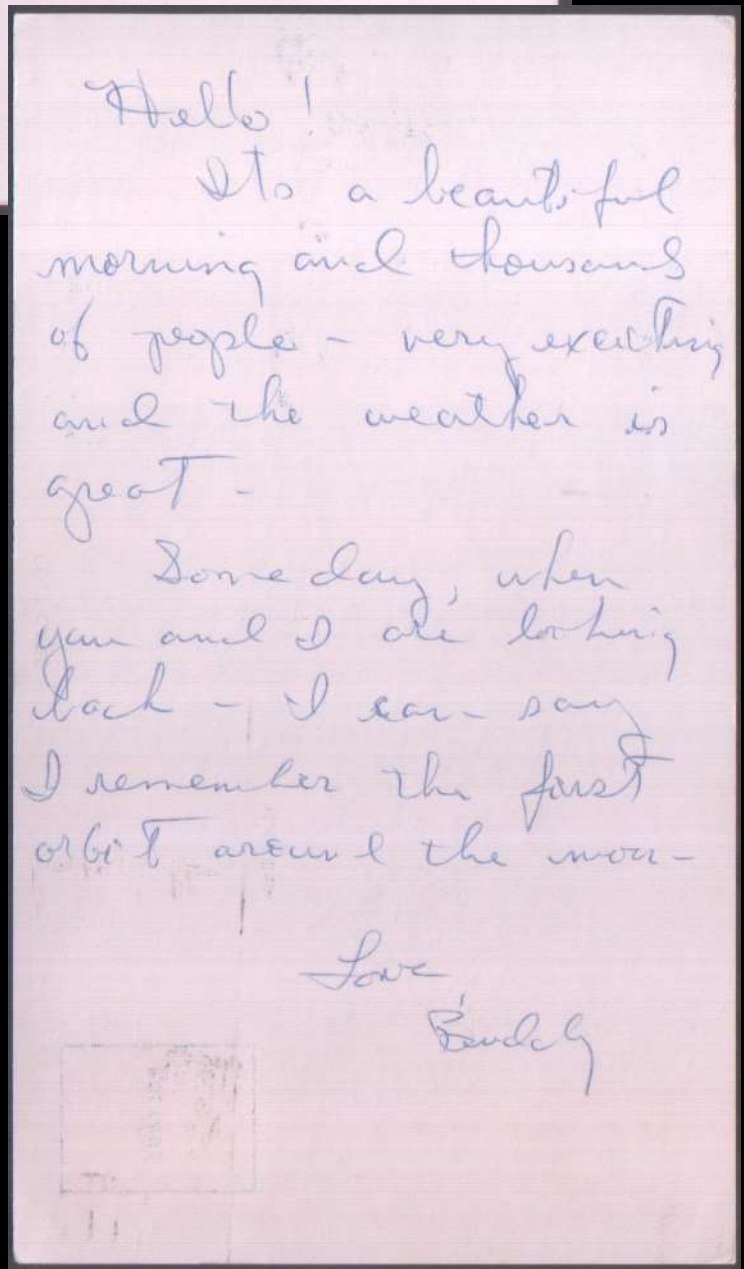 Hello!
Its a beautiful
morning and thousands
of people - very exciting
and the weather is
great -
Someday, when
you and I are looking
back - I can say
I remember the first
orbit around the moon -
Love,
Buddy